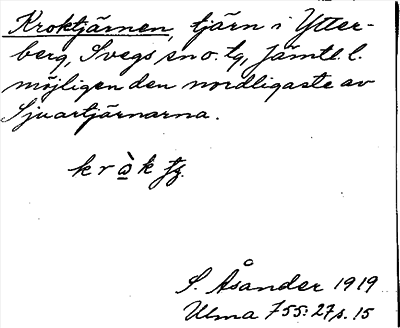 Kroktjärnen, tjärn i Ytter-
berg, Svegs sn o. tg, Jämtl. l.
möjligen den nordligaste av
Sjuartjärnarna.
krò̱k
S. Åsander 1919
Ulma 755:27 s. 15